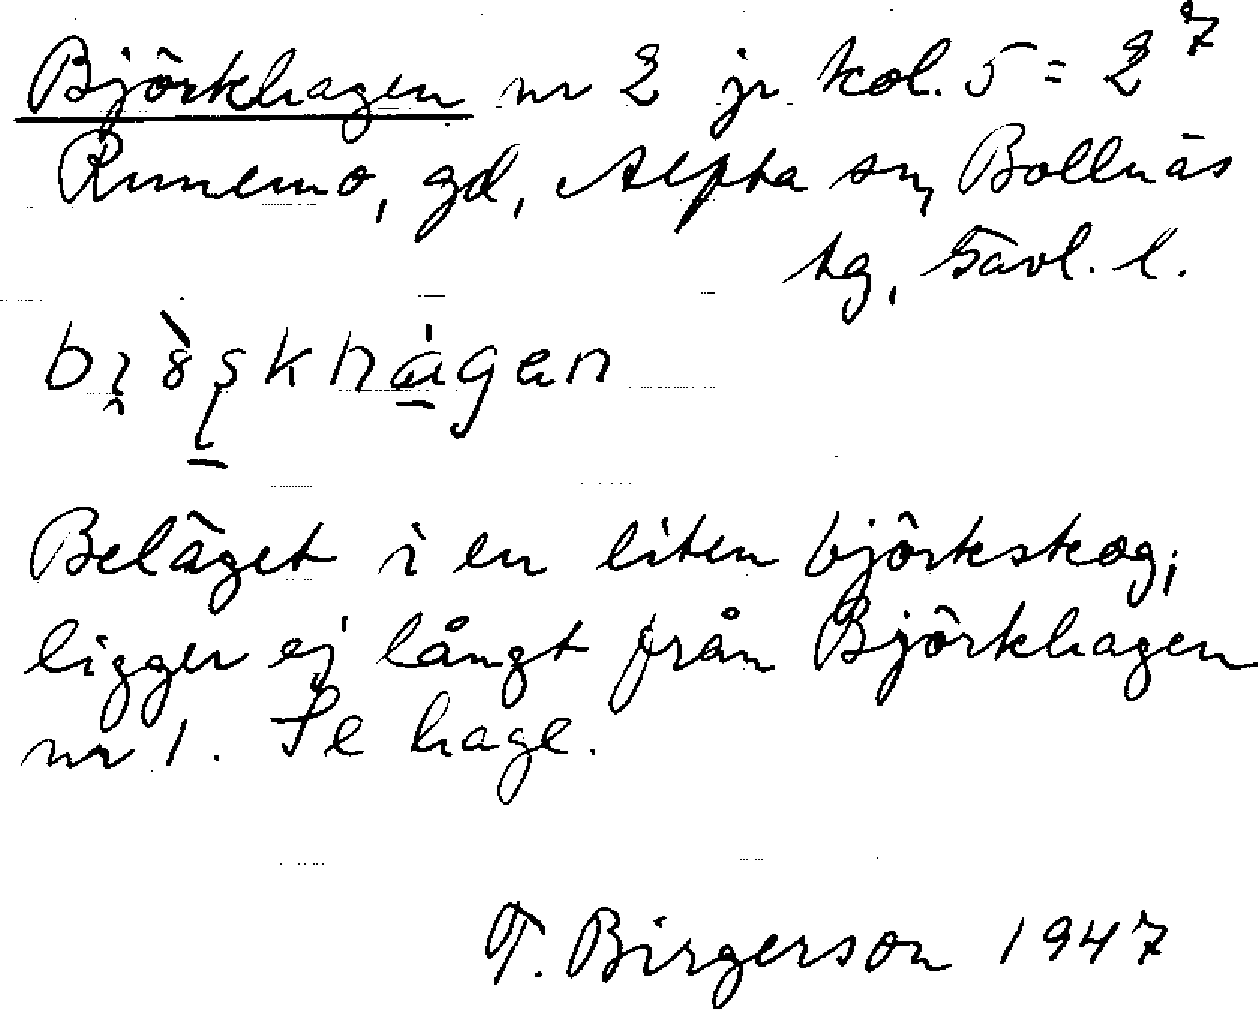 Björkhagen nr 2 jr kol. 5 = 2⁷
Runemo, gd, Alfta sn, Bollnäs
tg, Gävl. l.
Beläget i en liten björkskog;
ligger ej långt från Björkhagen
nr 1. Se hage.
T. Birgerson 1947